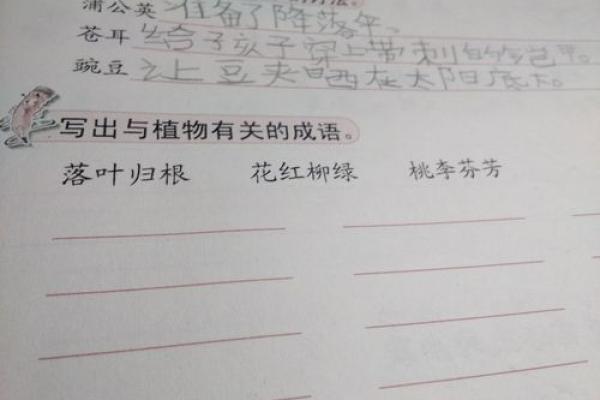 蒲公英 准备了降落伞。
苍耳 给孩子穿上带刺的铠甲。
豌豆 让豆荚晒在太阳底下。
写出与植物有关的成语。
落叶归根 花红柳绿 桃李芬芳